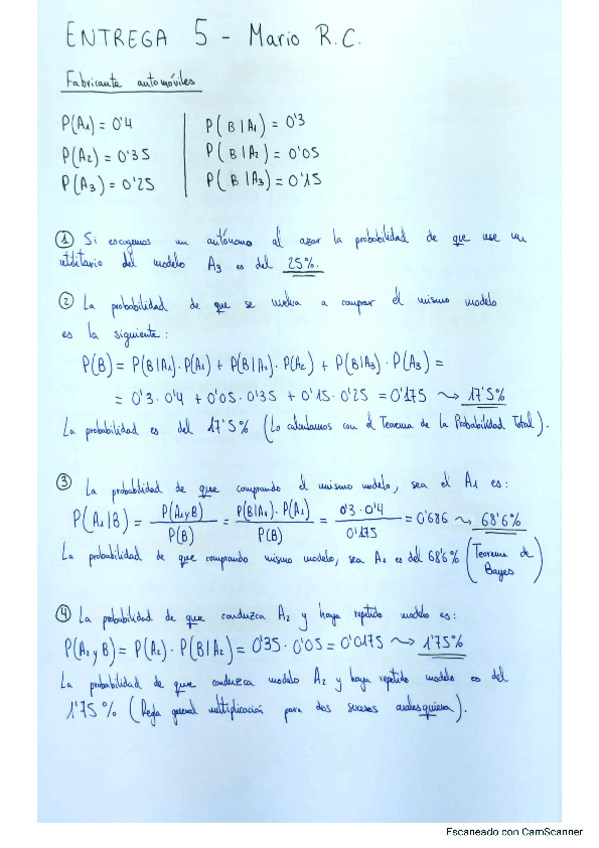 ENTREGA 5 - Mario R.C.
Fabricante automóviles
P(A₁) = 0'4
P(A₂) = 0'35
P(A₃) = 0'25
P(B|A₁) = 0'3
P(B|A₂) = 0'05
P(B|A₃) = 0'15
① Si escogemos un autónomo al azar la probabilidad de que use un
utilitario del modelo A₃ es del 25%.
② La probabilidad de que se vuelva a comprar el mismo modelo
es la siguiente:
P(B) = P(B|A₁)·P(A₁) + P(B|A₂)·P(A₂) + P(B|A₃)·P(A₃) =
= 0'3·0'4 + 0'05·0'35 + 0'15·0'25 = 0'175 ⤳ 17'5%
La probabilidad es del 17'5% (Lo calculamos con el Teorema de la Probabilidad Total).
③ La probabilidad de que comprando el mismo modelo, sea el A₁ es:
P(A₁|B) = P(A₁ y B) / P(B) = P(B|A₁)·P(A₁) / P(B) = 0'3·0'4 / 0'175 = 0'686 ⤳ 68'6%
La probabilidad de que comprando mismo modelo, sea A₁ es del 68'6% (Teorema de
Bayes)
④ La probabilidad de que conduzca A₂ y haya repetido modelo es:
P(A₂ y B) = P(A₂)·P(B|A₂) = 0'35·0'05 = 0'0175 ⤳ 1'75%
La probabilidad de que conduzca modelo A₂ y haya repetido modelo es del
1'75% (Regla general multiplicación para dos sucesos cualesquiera).
Escaneado con CamScanner